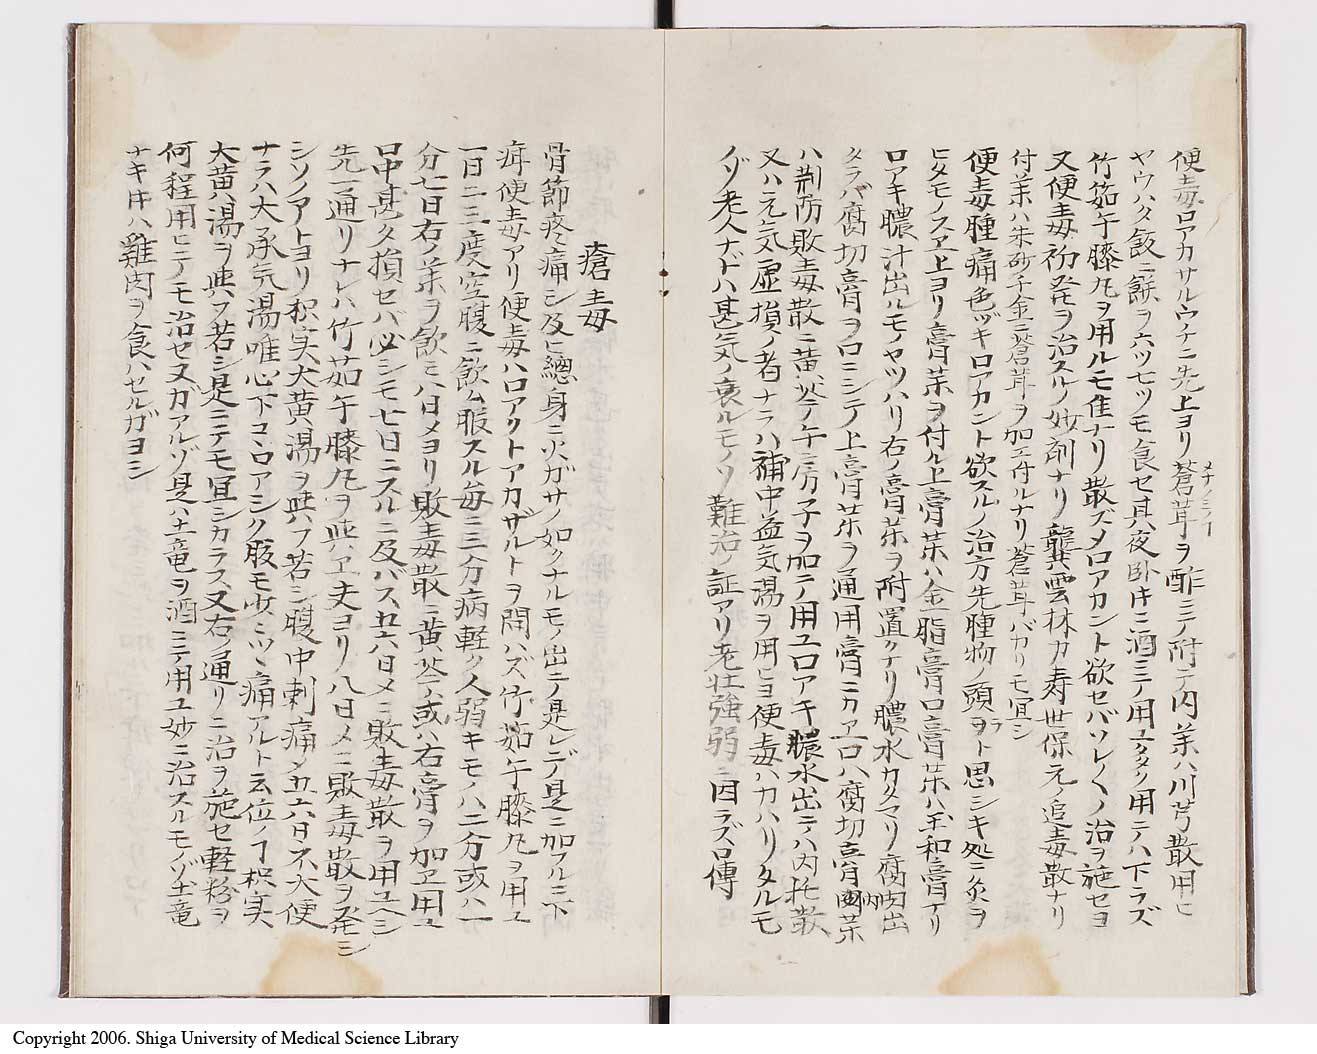 便毒口アカサルウチニ先上ヨリ蒼茸ヲ酢ニテ附テ内薬ハ川芎散用ヒ
ヲナノミノ
ヤウハタ飯ニ餅ヲ六ツ七ツモ食セ其夜卧キニ酒ニテ用ユタヲ用テハ下ラズ
竹茹午膝丸ヲ用ルモ佳ナリ散ズメロアカント欲セバソレ〱ノ治ヲ施セヨ
又便毒初発ヲ治スルノ妙剤ナリ龔雲林カ寿世保元ノ追毒散ナリ
付薬ハ朱砂千金ニ蒼茸ヲ加エ付ルナリ蒼茸バカリモ宜シ
便毒腫痛色ヅキ口アカント欲スルノ治方先腫物ノ頭ヲト思シキ処ニ灸ヲ
ヒタモノスヱ上ヨリ膏薬ヲ付ル上膏薬ハ金脂膏口膏薬ハ玉和膏ナリ
口アキ膿汁出ルモノヤツハリ右ノ膏薬ヲ附置クナリ膿水カタマリ腐肉出
タラバ腐切膏ヲ口ニシテ上膏薬ヲ通用膏ニカヱ口ハ腐切膏内薬
ハ荆防敗毒散ニ黄芩午三分子ヲ加ニノ用ユ口アキ膿水出テハ内托散
又ハ元気虚損ノ者ナラハ補中益気湯ヲ用ヒヨ便毒ハカハリタルモ
ノゾ老人ナドハ甚気ノ衰ルモノソ難治ノ証アリ老壮強弱ニ因ラズ口傳
瘡毒
骨節疼痛シ及ヒ總身ニ火ガサノ如クナルモノ出テ是レビテ是ニ加フルニ下
疳便毒アリ便毒ハ口アクトアカザルトヲ問ハズ竹茹午膝丸ヲ用ユ
一日ニ三度空腹ニ飲ム服スル毎ニ三分病軽ク人弱キモノハ二分或ハ一
分七日右ノ薬ヲ飲ミ八日メヨリ敗毒散ニ黄芩或ハ右膏ヲ加ヱ用ユ
口中甚タ損セバ必シモ七日ニスルニ及バス五六日メニ敗毒散ヲ用ユヘシ
先一通リナレハ竹茹午膝丸ヲ與ヱ夫ヨリ八日メニ敗毒散ヲ発シ
シソノアトヨリ枳実大黄湯ヲ與フ若シ腹中刺痛メ五六日不大便
ナラハ大承気湯唯心下コンロアシク腹モ少ニツヽ痛アルト云位ノヿ枳実
大黄湯ヲ與ヲ若シ是ニテモ宜シカラス又右ノ通リニ治ヲ施セ軽粉ヲ
何程用ヒテモ治セヌガアルゾ是ハ土竜ヲ酒ニテ用ユ妙ニ治スルモノゾ土竜
ナキキハ雞肉ヲ食ハセルガヨシ
Copyright 2006. Shiga University of Medical Science Library